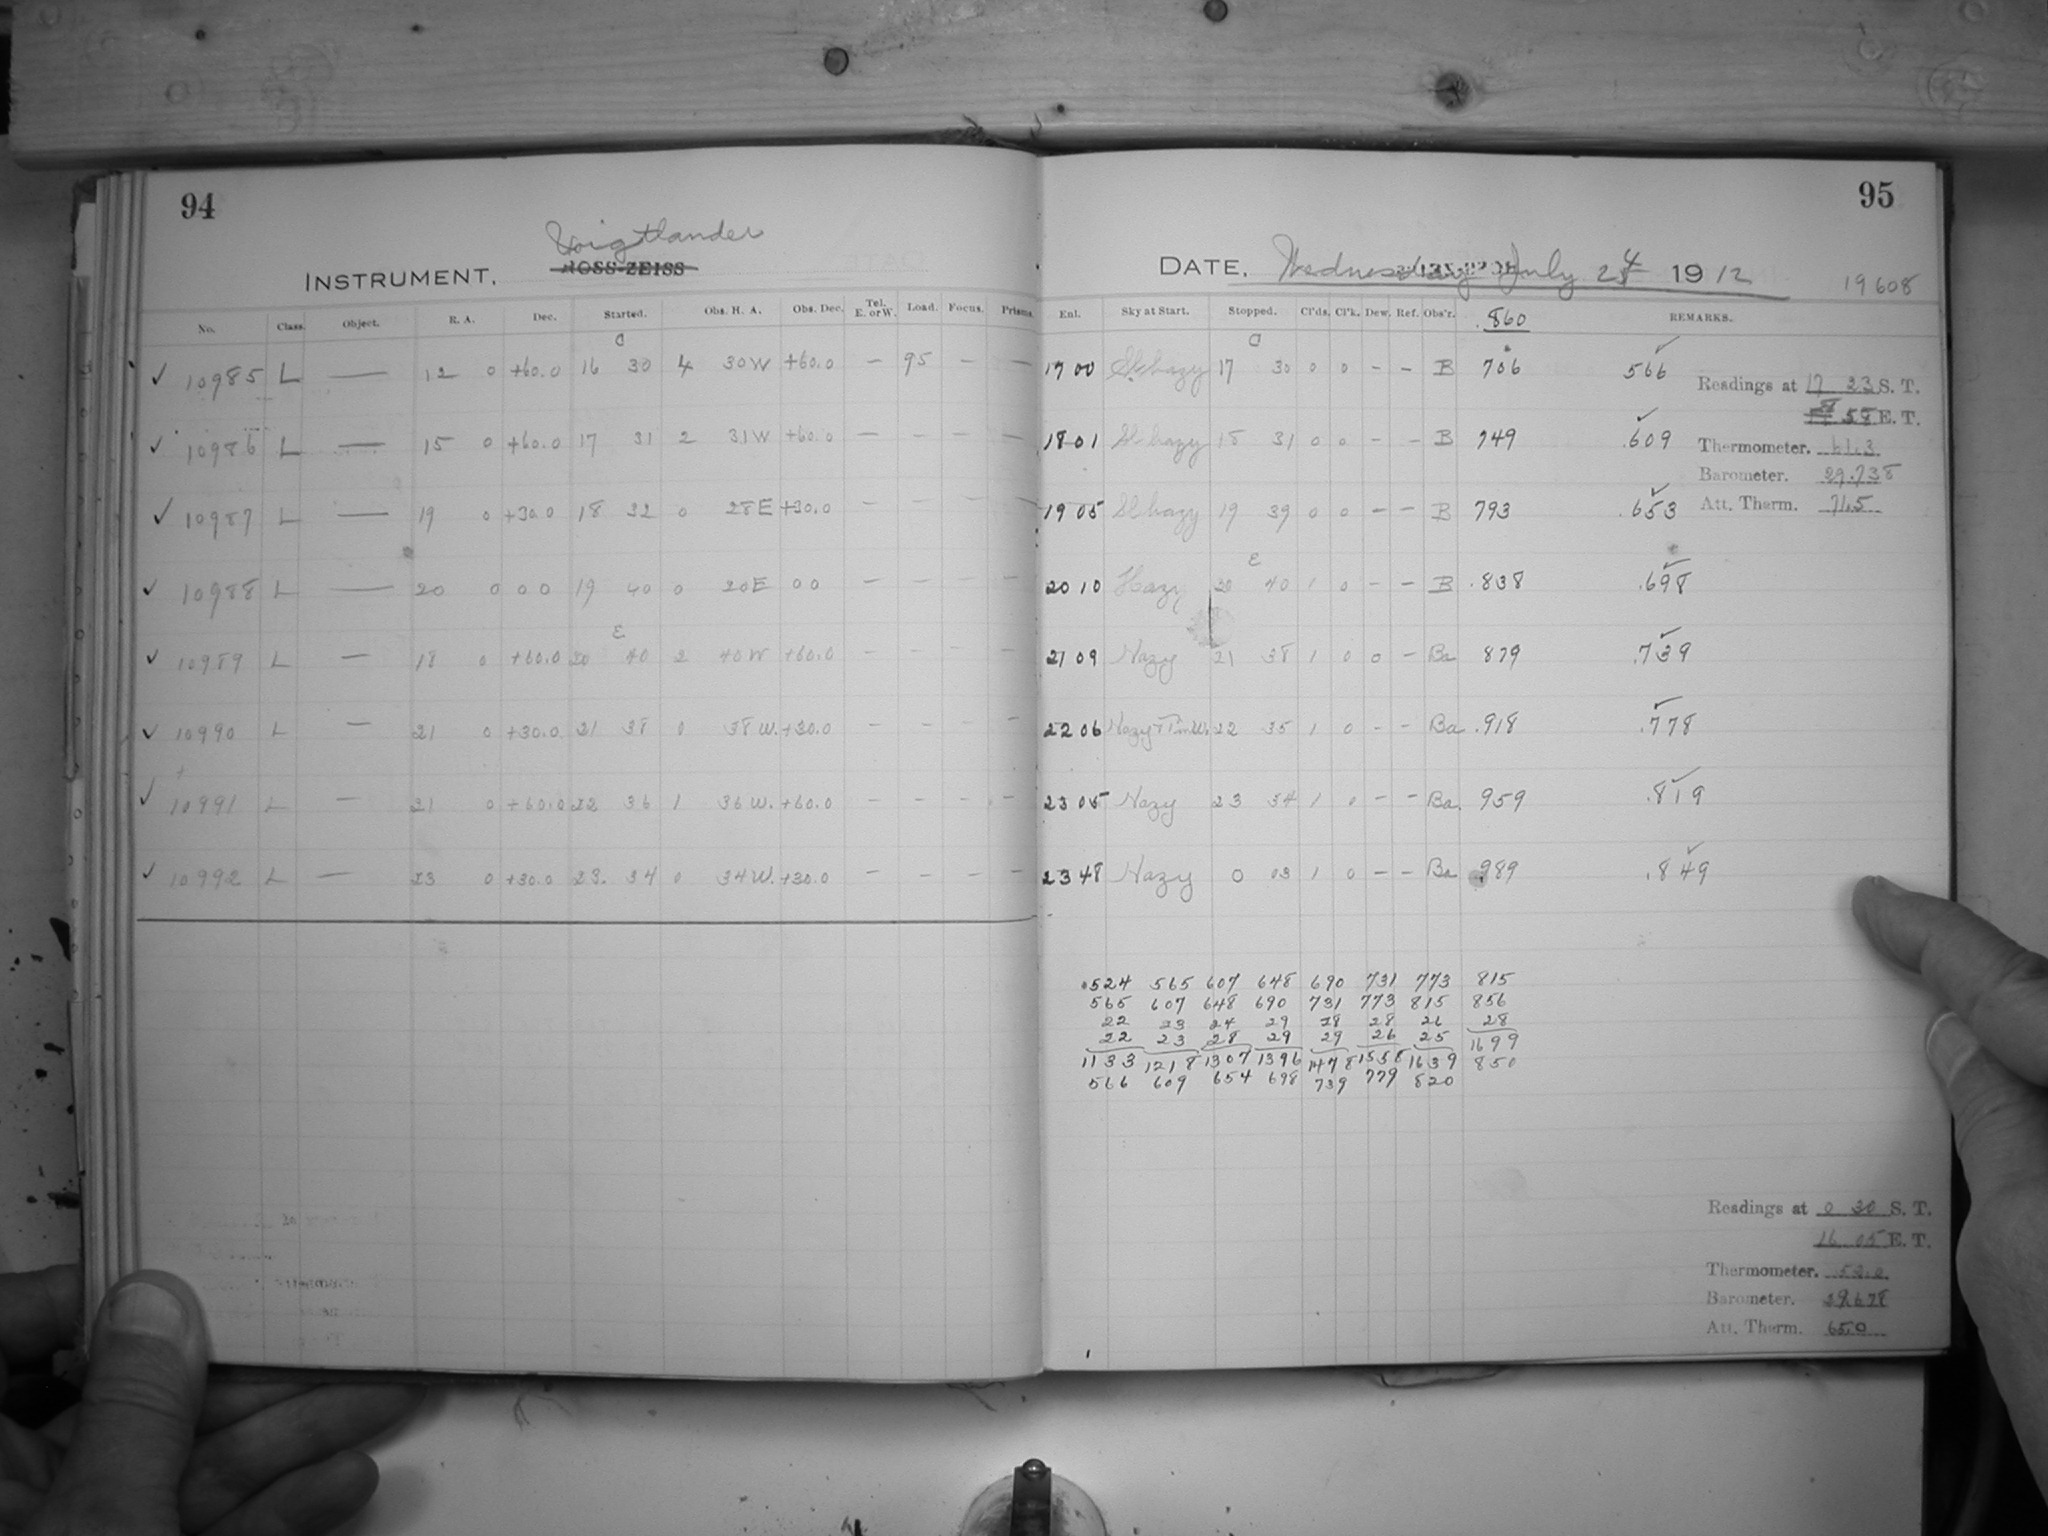 94
Voigtlander
INSTRUMENT, ROSS-ZEISS
No. Class. Object. R. A. Dec. Started. Obs. H. A. Obs. Dec. Tel. E. or W. Load. Focus. Prisms.
C
✓ 10985 L — 12 0 +60.0 16 30 4 30W +60.0 — 95 — —
✓ 10986 L — 15 0 +60.0 17 31 2 31W +60.0 — — — —
✓ 10987 L — 19 0 +30.0 18 32 0 28E +30.0 — — — —
✓ 10988 L — 20 0 0 0 19 40 0 20E 0 0 — — — —
E
✓ 10989 L — 18 0 +60.0 20 40 2 40W +60.0 — — — —
✓ 10990 L — 21 0 +30.0 21 38 0 38W. +30.0 — — — —
✓ 10991 L — 21 0 +60.0 22 36 1 36W. +60.0 — — — —
✓ 10992 L — 23 0 +30.0 23. 34 0 34W. +30.0 — — — —
95
DATE, Wednesday July 24 1912 19608
Enl. Sky at Start. Stopped. Cl'ds. Cl'k. Dew. Ref. Obs'r. .860 REMARKS.
C
17 00 Sl hazy 17 30 0 0 – – B 706 566 ✓
18 01 Sl hazy 18 31 0 0 – – B 749 .609 ✓
19 05 Sl hazy 19 39 0 0 – – B 793 .653 ✓
E
20 10 Hazy 20 40 1 0 – – B .838 .698 ✓
21 09 Hazy 21 38 1 0 0 – Ba 879 .739 ✓
22 06 Hazy 22 35 1 0 – – Ba .918 .778 ✓
23 05 Hazy 23 34 1 0 – – Ba. 959 .819 ✓
23 48 Hazy 0 03 1 0 – – Ba .989 .849 ✓
Readings at 17 23 S. T.
58 E. T.
Thermometer. 61.3
Barometer. 29.738
Att. Therm. 71.5
.524 565 607 648 690 731 773 815
565 607 648 690 731 773 815 856
22 23 24 29 28 28 26 28
22 23 28 29 29 26 25 1699
1133 1218 1307 1396 1478 1558 1639 850
566 609 654 698 739 779 820
Readings at 0 30 S. T.
16 05 E. T.
Thermometer. 52.2
Barometer. 29.678
Att. Therm. 65.0